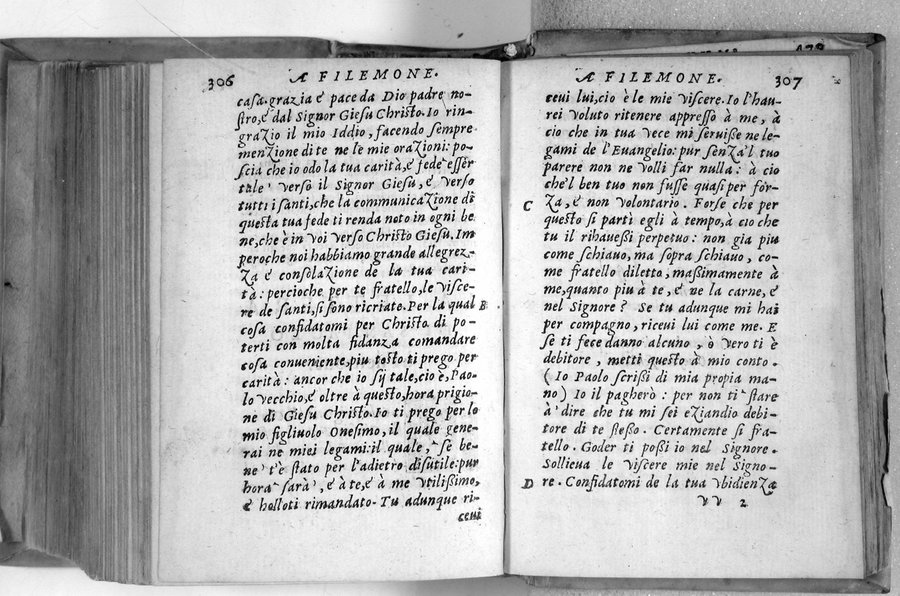 306 A FILEMONE.
casa. grazia e pace da Dio padre no-
stro, e dal Signor Giesu Christo. Io rin-
grazio il mio Iddio, facendo sempre
menzione di te ne le mie orazioni: po-
scia che io odo la tua carità, e fede esser
tale verso il Signor Giesu, e verso
tutti i santi, che la communicazione di
questa tua fede ti renda noto in ogni be
ne, che è in voi verso Christo Giesu. Im
peroche noi habbiamo grande allegrez-
za e consolazione de la tua cari-
tà: percioche per te fratello, le visce-
re de santi, si sono ricriate. Per la qual B
cosa confidatomi per Christo di po-
terti con molta fidanza comandare
cosa conveniente, piu tosto ti prego per
carità: ancor che io sij tale, cio è, Pao-
lo vecchio, e oltre à questo, hora prigio-
ne di Giesu Christo. Io ti prego per lo
mio figliuolo Onesimo, il quale gene-
rai ne miei legami: il quale, se be-
ne t'è stato per l'adietro disutile: pur
hora sarà, e à te, e à me vtilissimo,
e holloti rimandato. Tu adunque ri-
ceui
A FILEMONE. 307
ceui lui, cio è le mie viscere. Io l'hau-
rei voluto ritenere appresso à me, à
cio che in tua vece mi seruisse ne le-
gami de l'Euangelio: pur senza'l tuo
parere non ne volli far nulla: à cio
che'l ben tuo non fusse quasi per for-
C za, e non volontario. Forse che per
questo si parti egli à tempo, à cio che
tu il rihauessi perpetuo: non gia piu
come schiauo, ma sopra schiauo, co-
me fratello diletto, massimamente à
me, quanto piu à te, e ne la carne, e
nel Signore? Se tu adunque mi hai
per compagno, riceui lui come me. E
se ti fece danno alcuno, ò vero ti è
debitore, metti questo à mio conto.
(Io Paolo scrissi di mia propia ma-
no) Io il pagherò: per non ti stare
à dire che tu mi sei eziandio debi-
tore di te stesso. Certamente si fra-
tello. Goder ti possi io nel Signore.
Sollieua le viscere mie nel Signo-
D re. Confidatomi de la tua vbidienza
vv 2